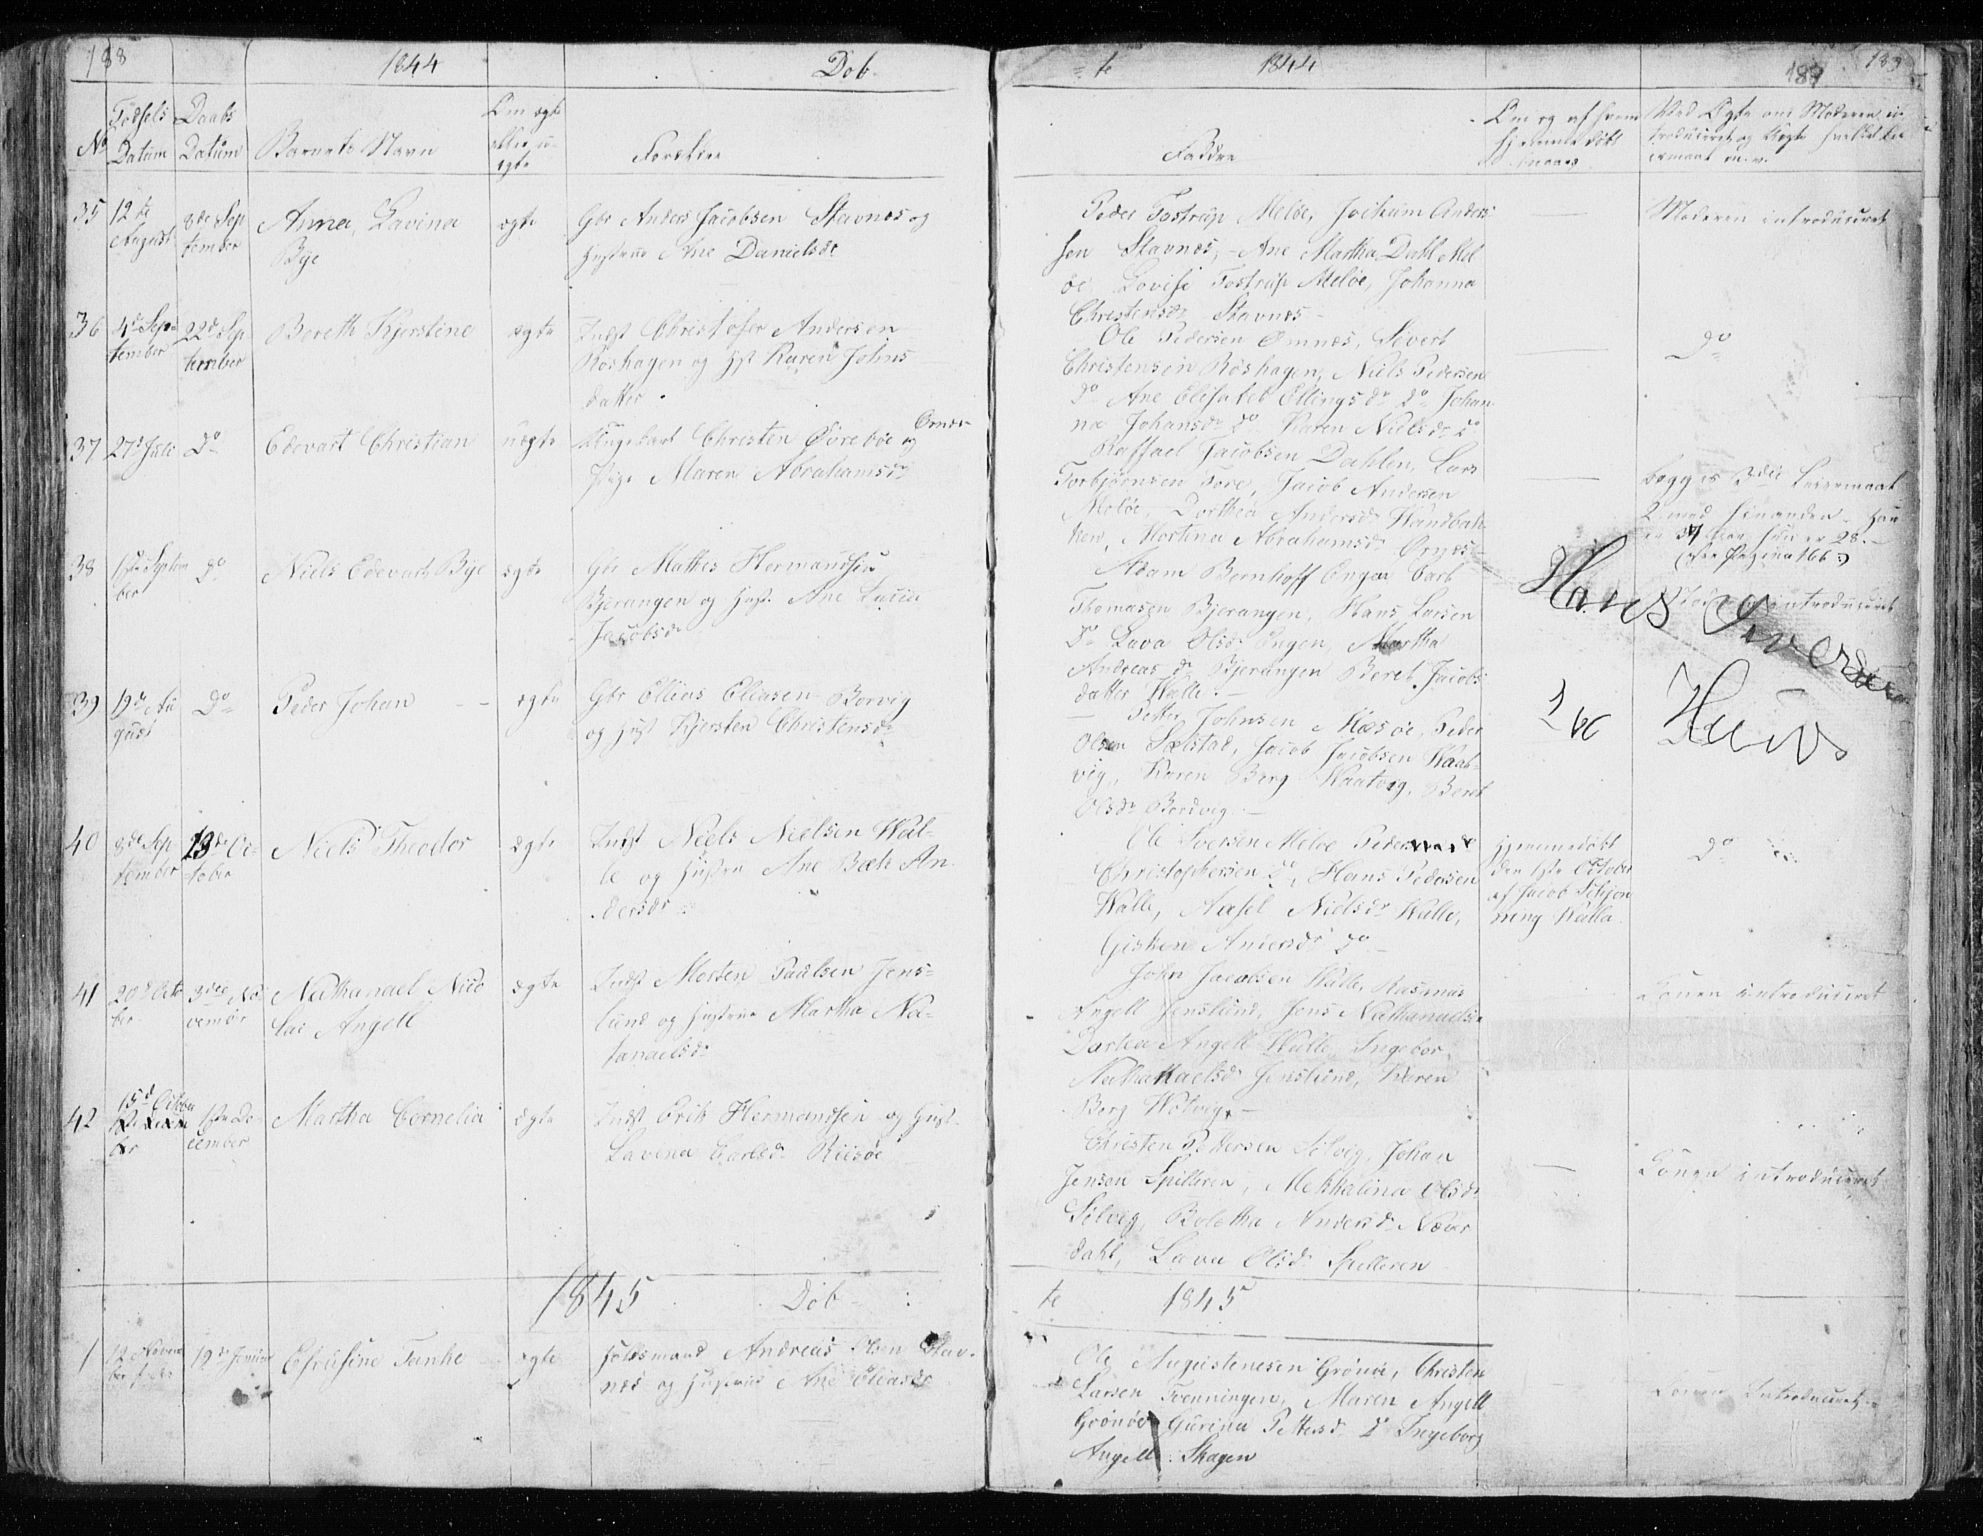 188
1844
Døb-
No
Fødsels
Datum
Daabs
Datum
Barnets Navn
Om ægte
eller u-
ægte
Forældre
35
12te
August
8de Sep
tember
Anna, Lavina
Bye
ægte
Gbr Anders Jacobsen Stavnes og
Hustrue Ane Danielsdr
36
4de Sep-
tember
22de Sep
tember
Bereth Kjerstine
ægte
Indst Christofer Andersen
Røshagen og Hst Karen Johns
datter
37
27de Juli
Do
Edevart Christian
uægte
Ungekarl Christen Ørebøe og
Ørnæs
Pige Maren Abrahamsdr
38
1ste Septem
ber
Do
Niels Edevart Bye
ægte
Gbr Mathes Hermandsen
Bjerangen og Hust. Ane
Jacobsdr
39
19de Au
gust
Do
Peder Johan
ægte
Gbr Ellias Eliasen Borvig
og Hust Kjersten Christensdr
40
8de Sep
tember
13de Oc-
tober
Niels Theodor
ægte
Indst Niels Nielsen Wal-
le og Hustru Ane Beth An-
dersdr
41
20de Octo
ber
3die No
vember
Nathanael Nico
lai Angell
ægte
Indst Morten Paulsen Jens-
lund og Hustrue Martha Na-
tanaelsdr
42
15de October
1ste De-
cember
Martha Cornelia
ægte
Indst Erik Hermandsen og Hust.
Lavina Carlsdr Riisøe
1845
Døb-
1
12 Novem
ber
19de Januar
Efrusine Tanke
ægte
Huusmand Andreas Olsen Stav-
nes og Hustrue Ane Eliasdr
= te
1844
189
189
Faddre
Om og af hvem
hjemmedøbt
Ved Ægte om Moderen in
troduceret og Uægte hvilket Lei
ermaal m.v.
Peder Tostrup Meløe, Jochum Anders
sen Stavnes, - Ane Martha Dahl Mel
øe Lovise Tostrup Meløe, Johanna
Christensdr Stavnes -
Moderen introduceret
Ole Pedersen Ørnæs, Sivert
Christensen Røshagen, Niels Pedersen
do Ane Elisabeb Ellingsdr do Johan
na Johansdr do Karen Nielsdr do
Do
Raffael Jacobsen Dahlen, Lars
Torbjørnsen Fore, Jacob Andersen
Meløe, Dorthea Andersdr Wandbak
ken, Mortina Abrahamsdr Ørnæs
begges 3die Leiermaal
2 med hinanden. Han
er 37 Aar hun er 28.-
(see Pagina 166)
Adam Bernhoff Engen Carl
Thomasen Bjerangen, Hans Larsen
Do Lava Olsdr Engen, Martha
Andreasdr Bjerangen Beret Jacobs
datter Walle. -
introduceret
Hans Iversen
Petter Johnsen Mæsøe, Peder
Olsen Selstad, Jacob Jacobsen Waat-
vig, Karen Berg Waatvig, Beret
Olsdr Bordvig. -
Hans
Ole Iversen Meløe Peder
Christophersen do, Hans Pedersen
Walle, Axsel Nielsdr Walle,
Gisken Andersdr do -
Hjemmedøbt
den 1ste October
af Jacob Schjøn
ning Walla.
Do
John Jacobsen Walle, Rasmus
Angell Jenslund, Jens Nathanaelsen
Dorthea Angell Walle, Ingebor
Nathanaelsdr Jenslund, Karen
Berg Wotvig. -
Konen introduceret
Christen Pettersen Sølvig, Johan
Jensen Spilleren, Mekkelina Olsdr
Sølvig, Boletha Andersdr Næver
dahl, Lava Olsdr Spilleren
Konen introduceret
te
1845
Ole Augustenesen Grønøe, Christen
Larsen Tvenningen, Maren Angell
Grønøe Gurina Pettersdr Do Ingeborg
Angell: Skagen
Konen Introduceret.